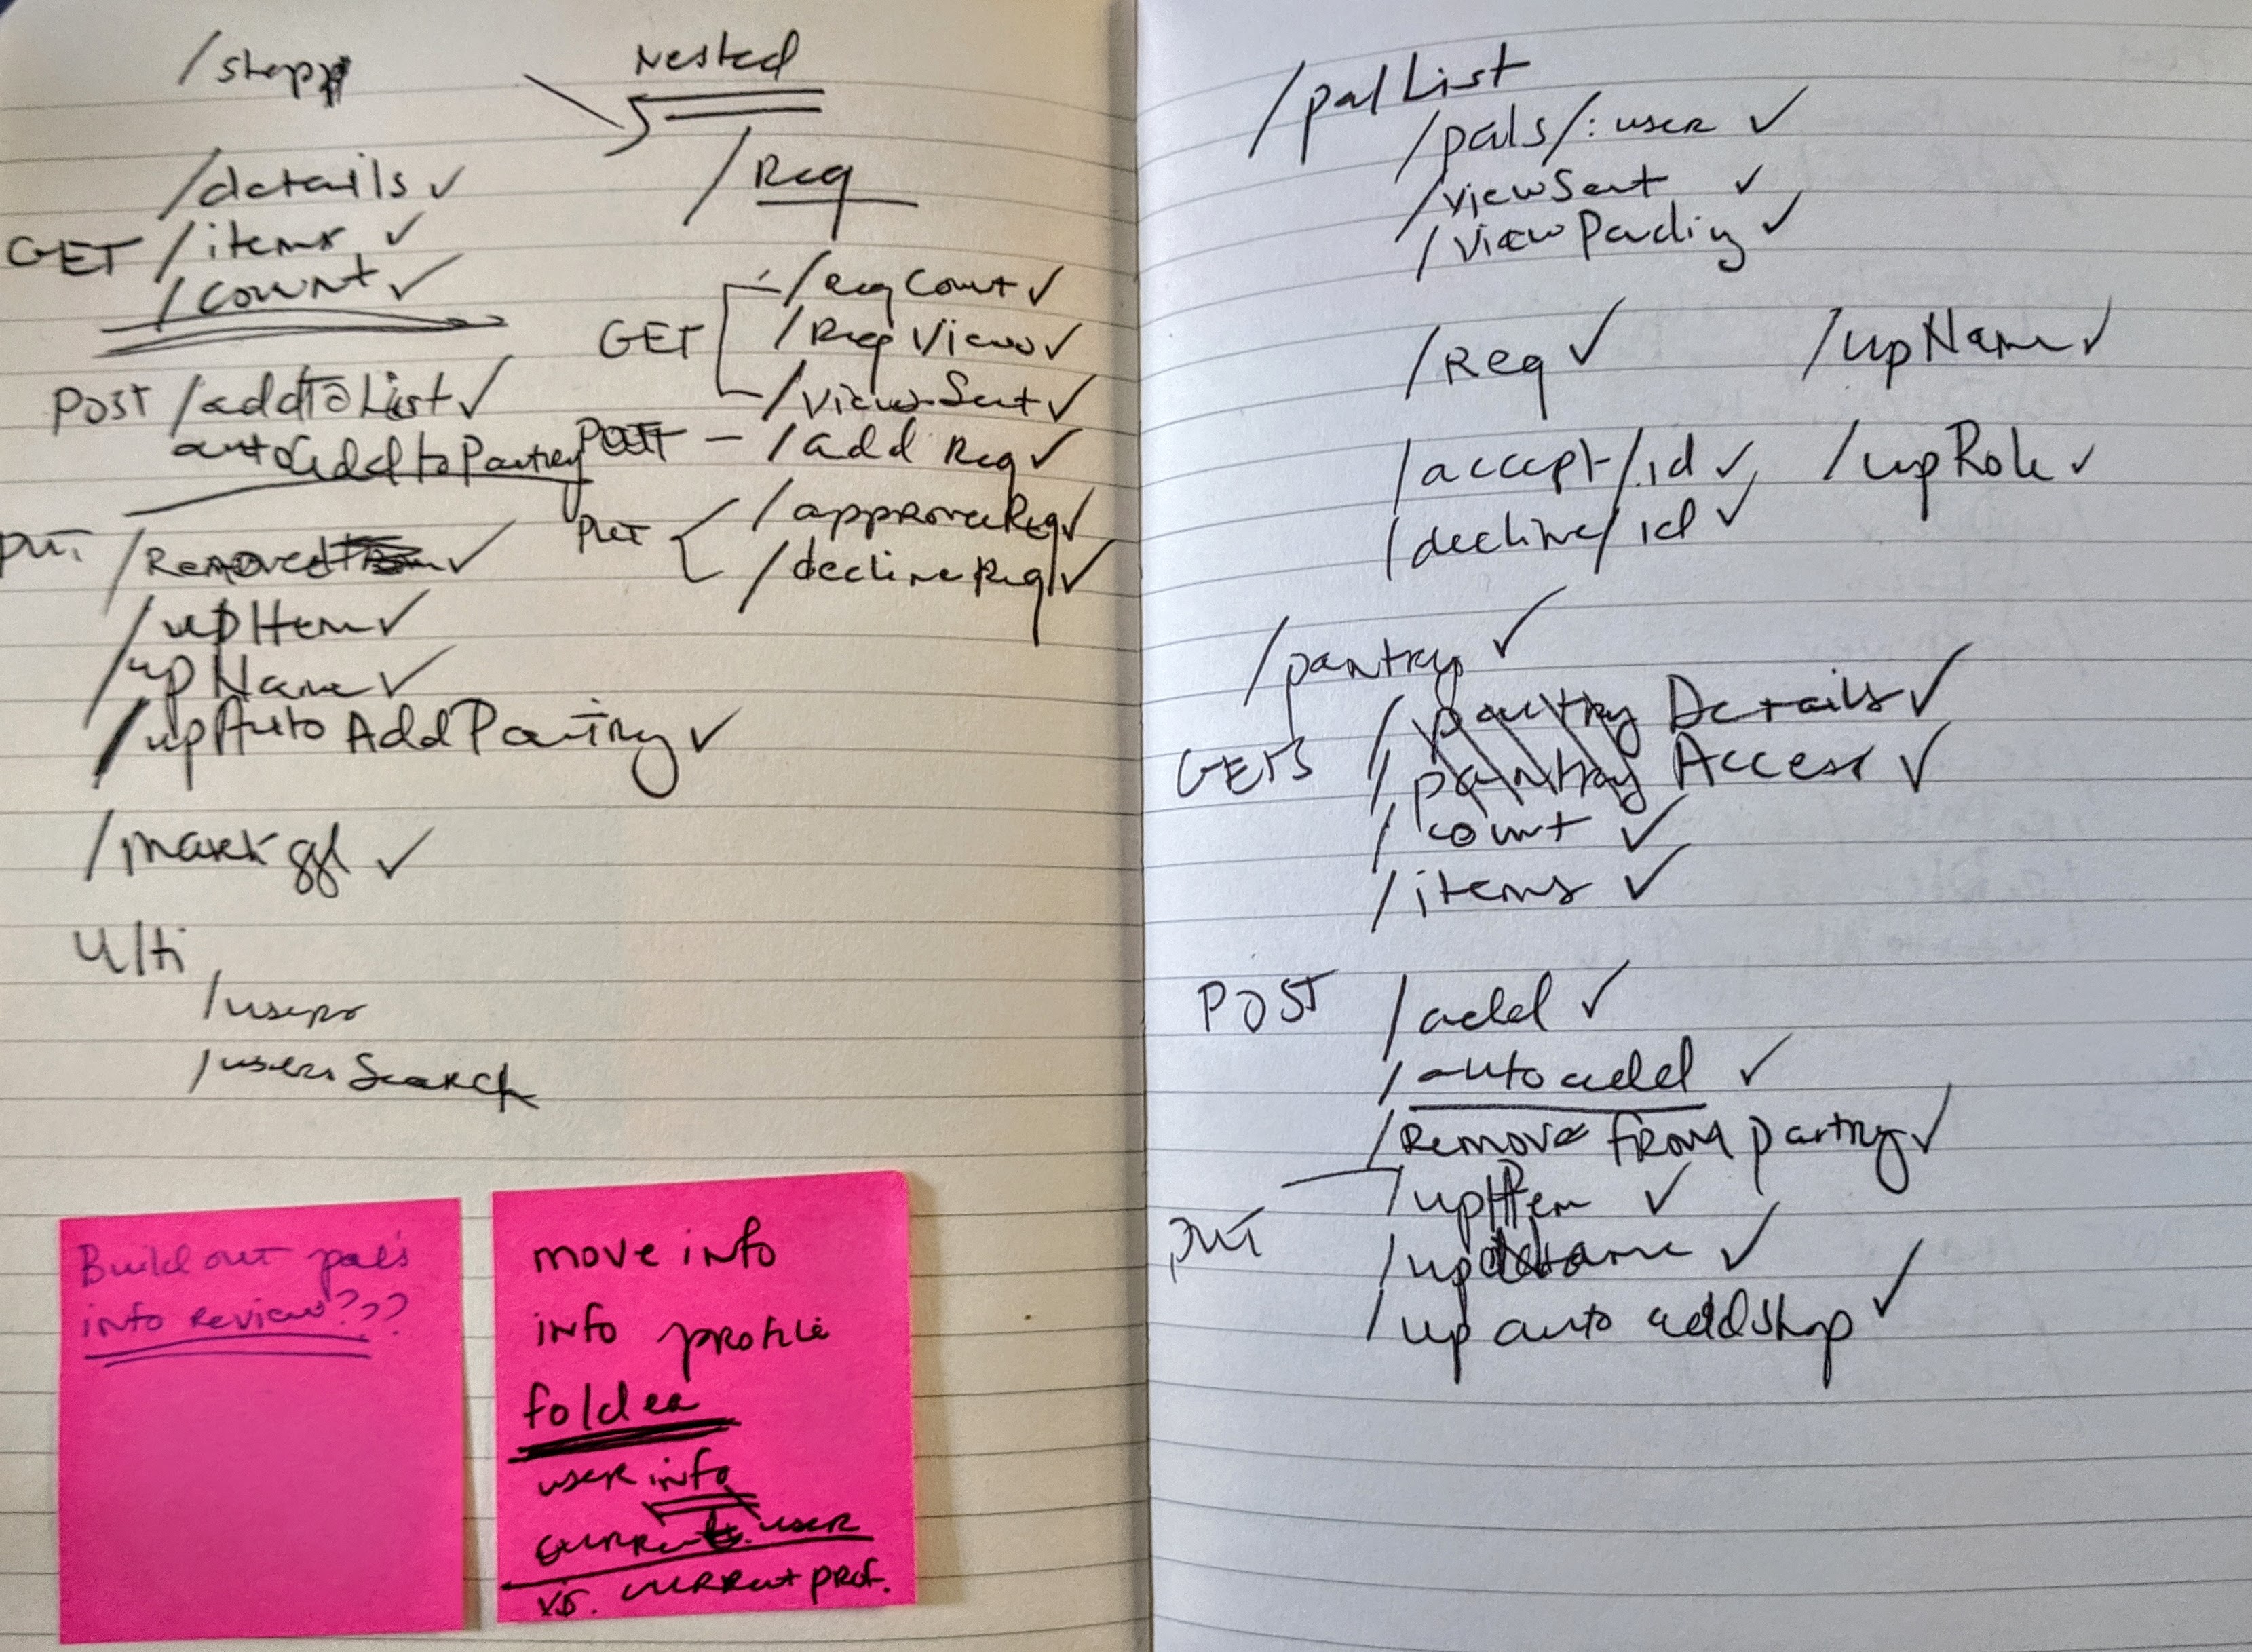 /shop
/details ✓
GET /items ✓
/count ✓
POST /addToList ✓
autoaddtoPantry
PUT /Removed ✓
/upItem ✓
/upName ✓
/upAuto AddPantry ✓
/mark ✓
Ulti
/users
/userSearch
Nested
/Req
GET /ReqCount ✓
/Req View ✓
/viewSent ✓
POST – /add Req ✓
PUT /approveReq ✓
/declineReq ✓
Build out pal's
info review???
move info
info profile
folder
user info
current user
vs. current prof.
/palList
/pals/:user ✓
/viewSent ✓
/viewPending ✓
/Req ✓ /upName ✓
/accept/:id ✓ /upRole ✓
/decline/id ✓
/pantry ✓
/pantry Details ✓
GETS /pantry Access ✓
/count ✓
/items ✓
POST /add ✓
/autoadd ✓
/Remove from pantry ✓
/upItem ✓
PUT /upName ✓
/up auto addshop ✓